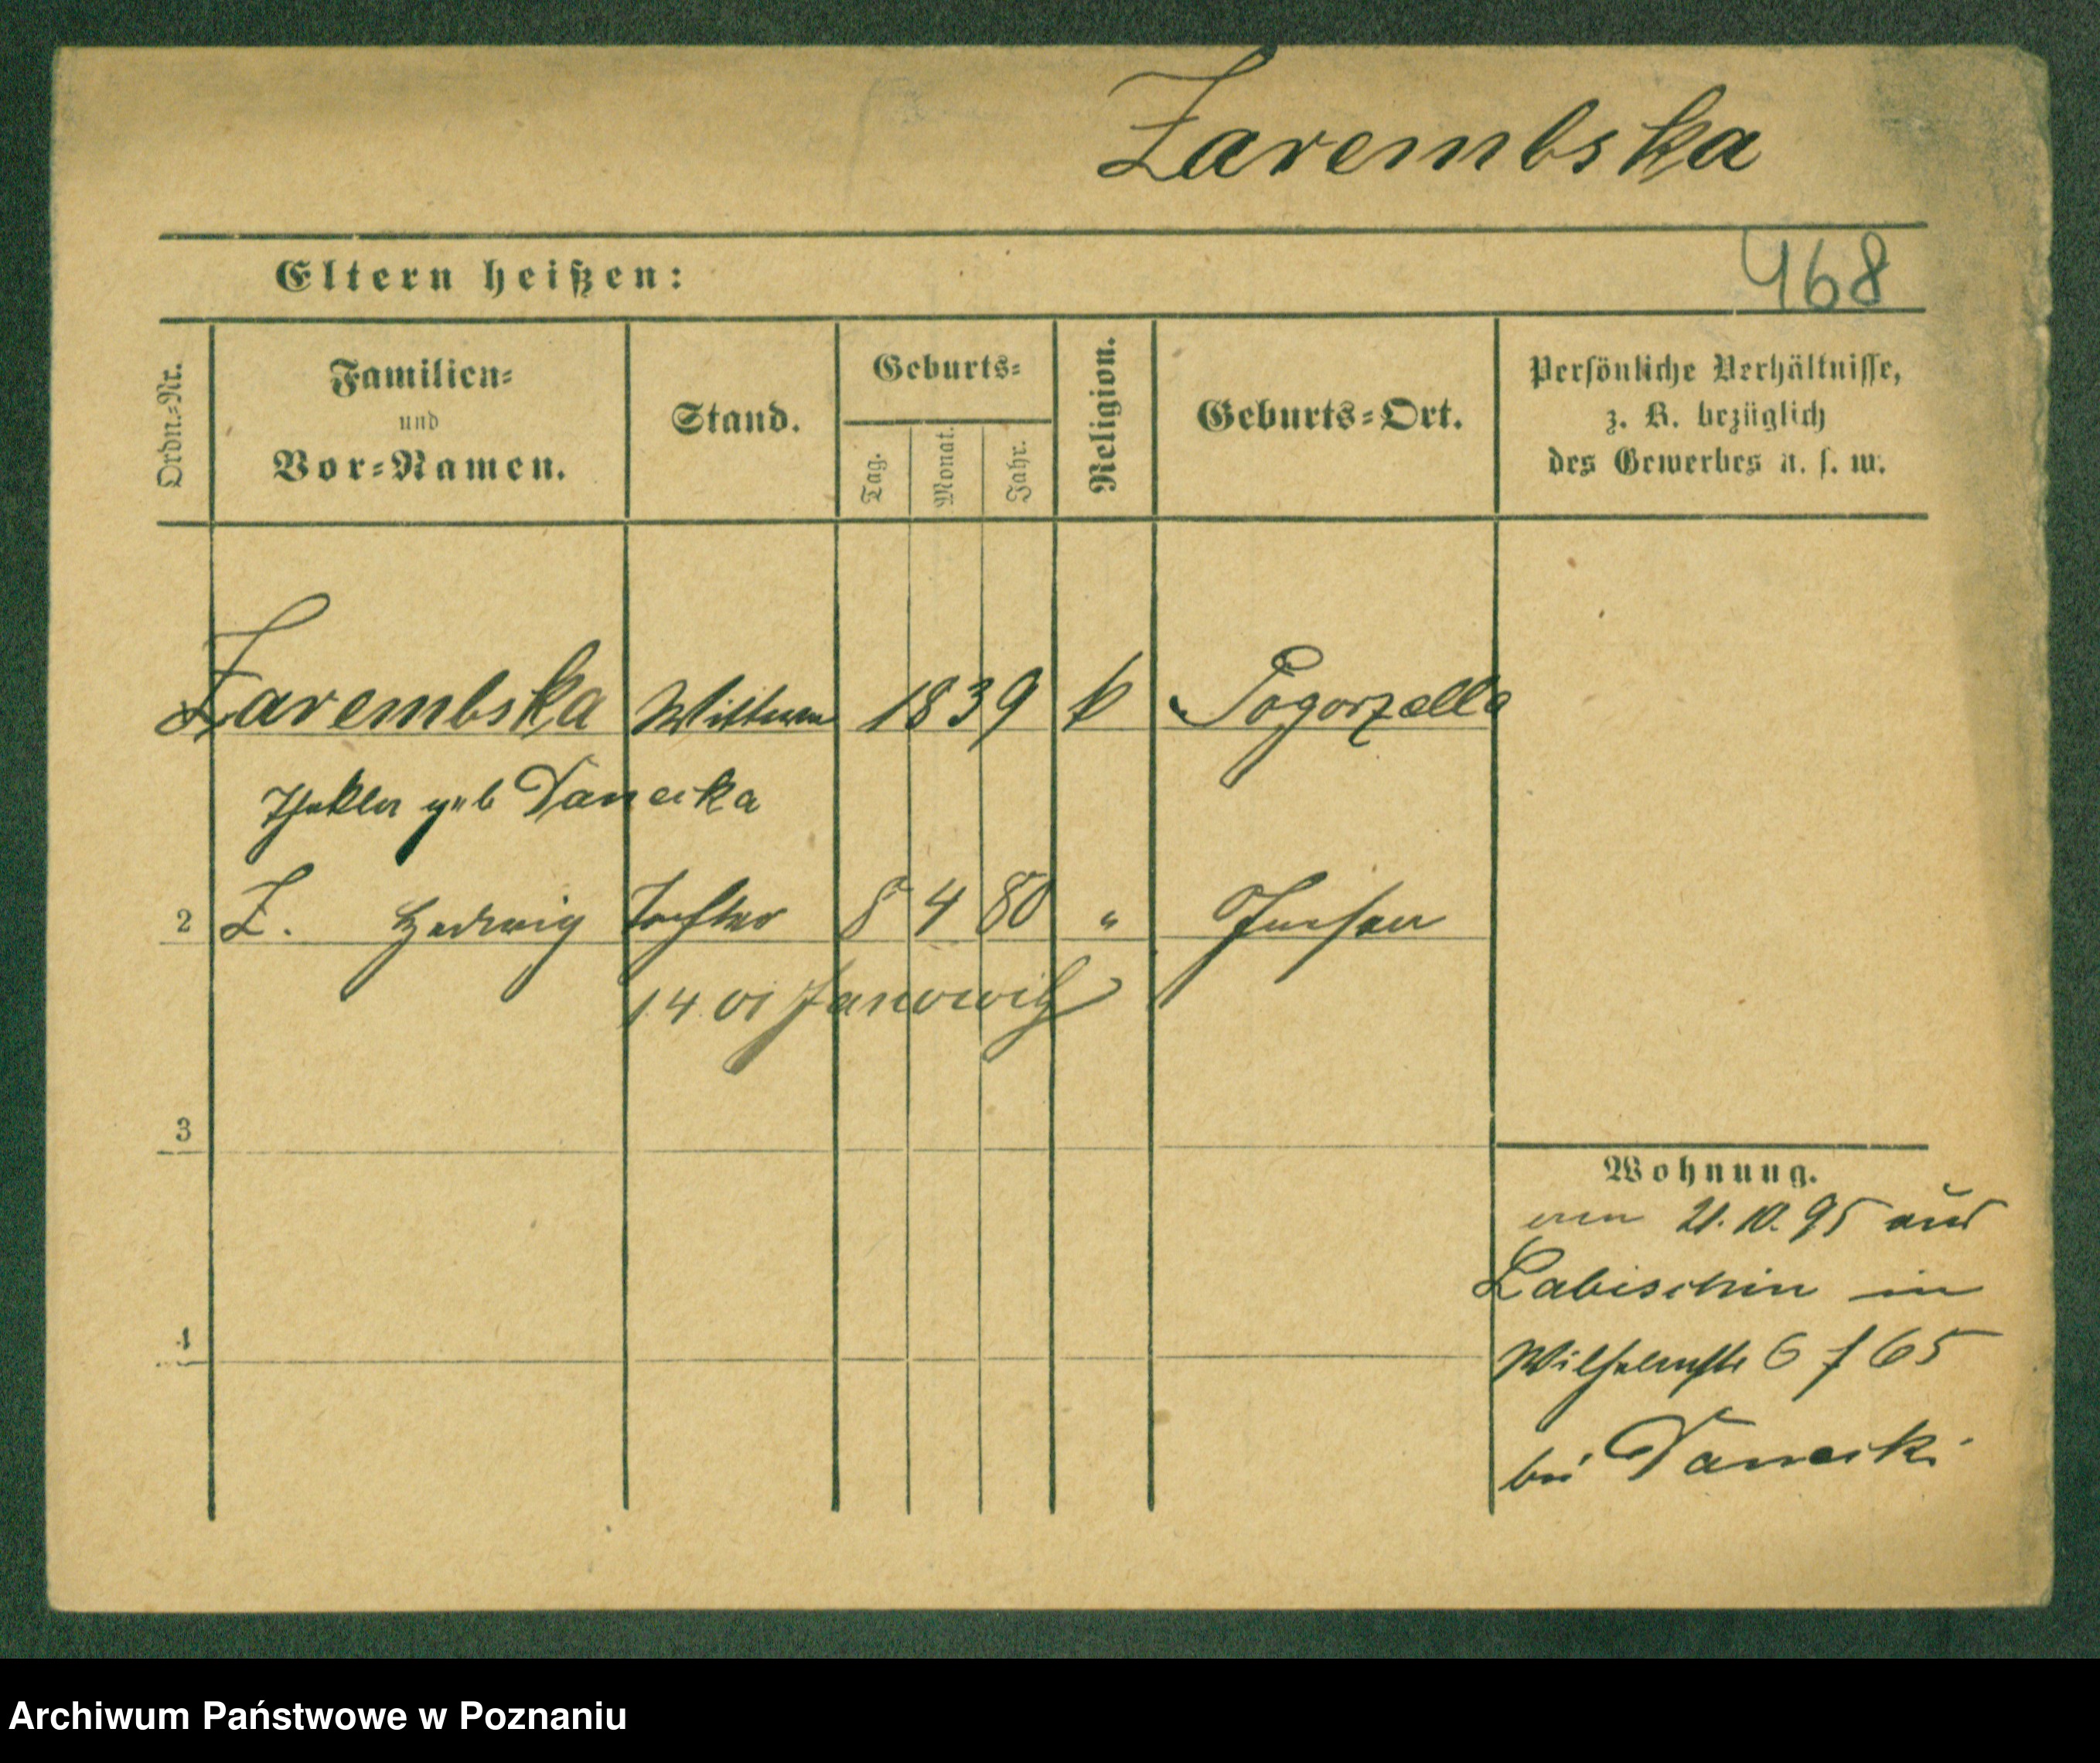 Zarembska
Eltern heißen:
468
Ordn.-Nr.
Familien-
und
Vor-Namen.
Stand.
Geburts-
Tag.
Monat.
Jahr.
Religion.
Geburts-Ort.
Persönliche Verhältnisse,
z. B. bezüglich
des Gewerbes u. s. w.
Zarembska Wittwe 1839 k Pogorzella
Thekla geb Danecka
2 Z. Hedwig Tochter 8 4 80 "
14 01 Janowitz
3
4
Wohnung.
21.10.95 aus
Labischin in
Wilhelmstr 6 f 65
bei Danecki
Archiwum Państwowe w Poznaniu